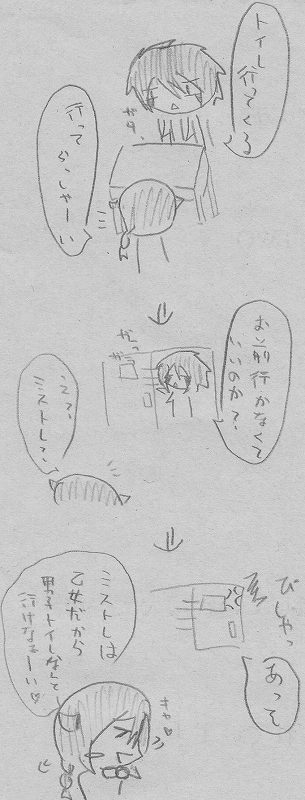 トイレ行ってくる
ガタ、
行って
らっしゃーい
お前行かなくて
いいのか？
がらっ
えて、
ミストレて、
びしゃっ
あっそ
ミストレは
乙女だから
男子トイレなんて
行けなぁーい♡
キャ♡